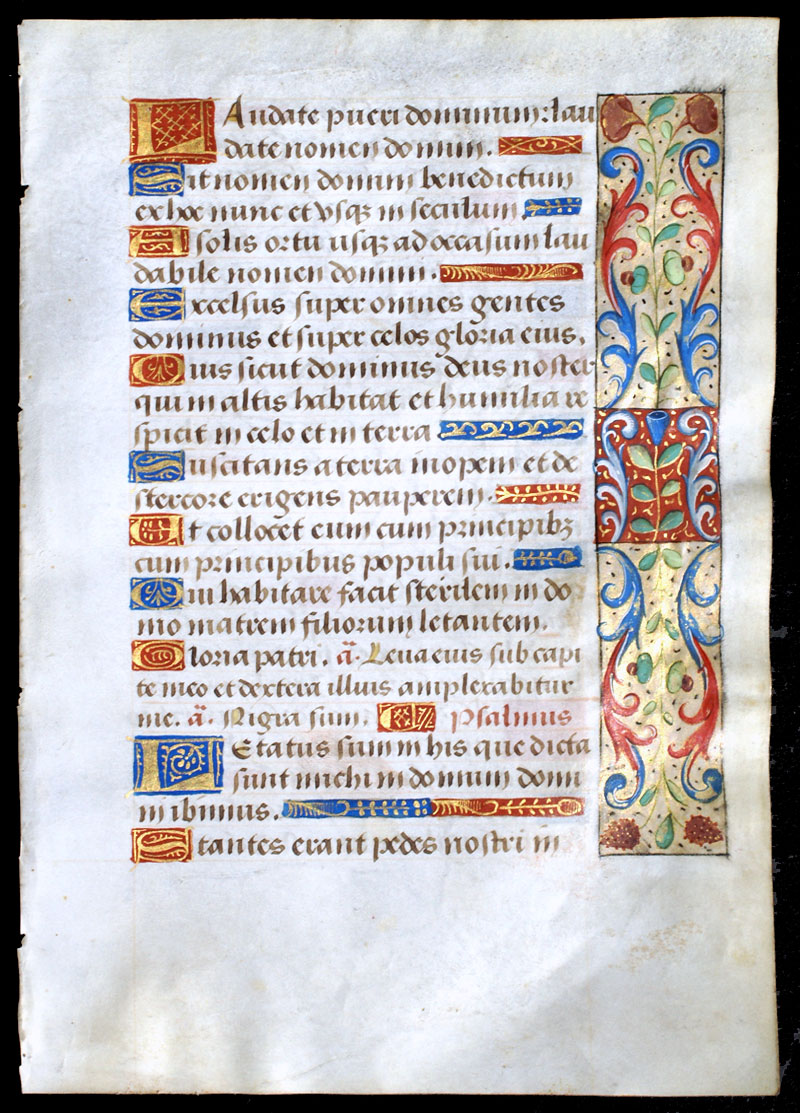 LAudate pueri dominum: lau
date nomen domini.
Sit nomen domini benedictum
ex hoc nunc et vsqꝫ in seculum
A solis ortu usqꝫ ad occasum lau
dabile nomen domini.
Excelsus super omnes gentes
dominus et super celos gloria eius.
Quis sicut dominus deus noster
qui in altis habitat et humilia re
spicit in celo et in terra
Suscitans a terra inopem et de
stercore erigens pauperem.
Ut collocet eum cum principibꝫ
cum principibus populi sui.
Qui habitare facit sterilem in do
mo matrem filiorum letantem.
Gloria patri. a. Leua eius sub capi
te meo et dextera illius amplexabitur
me. a. Nigra sum. Psalmus
LEtatus sum in his que dicta
sunt michi in domum domi
ni ibimus.
Stantes erant pedes nostri in